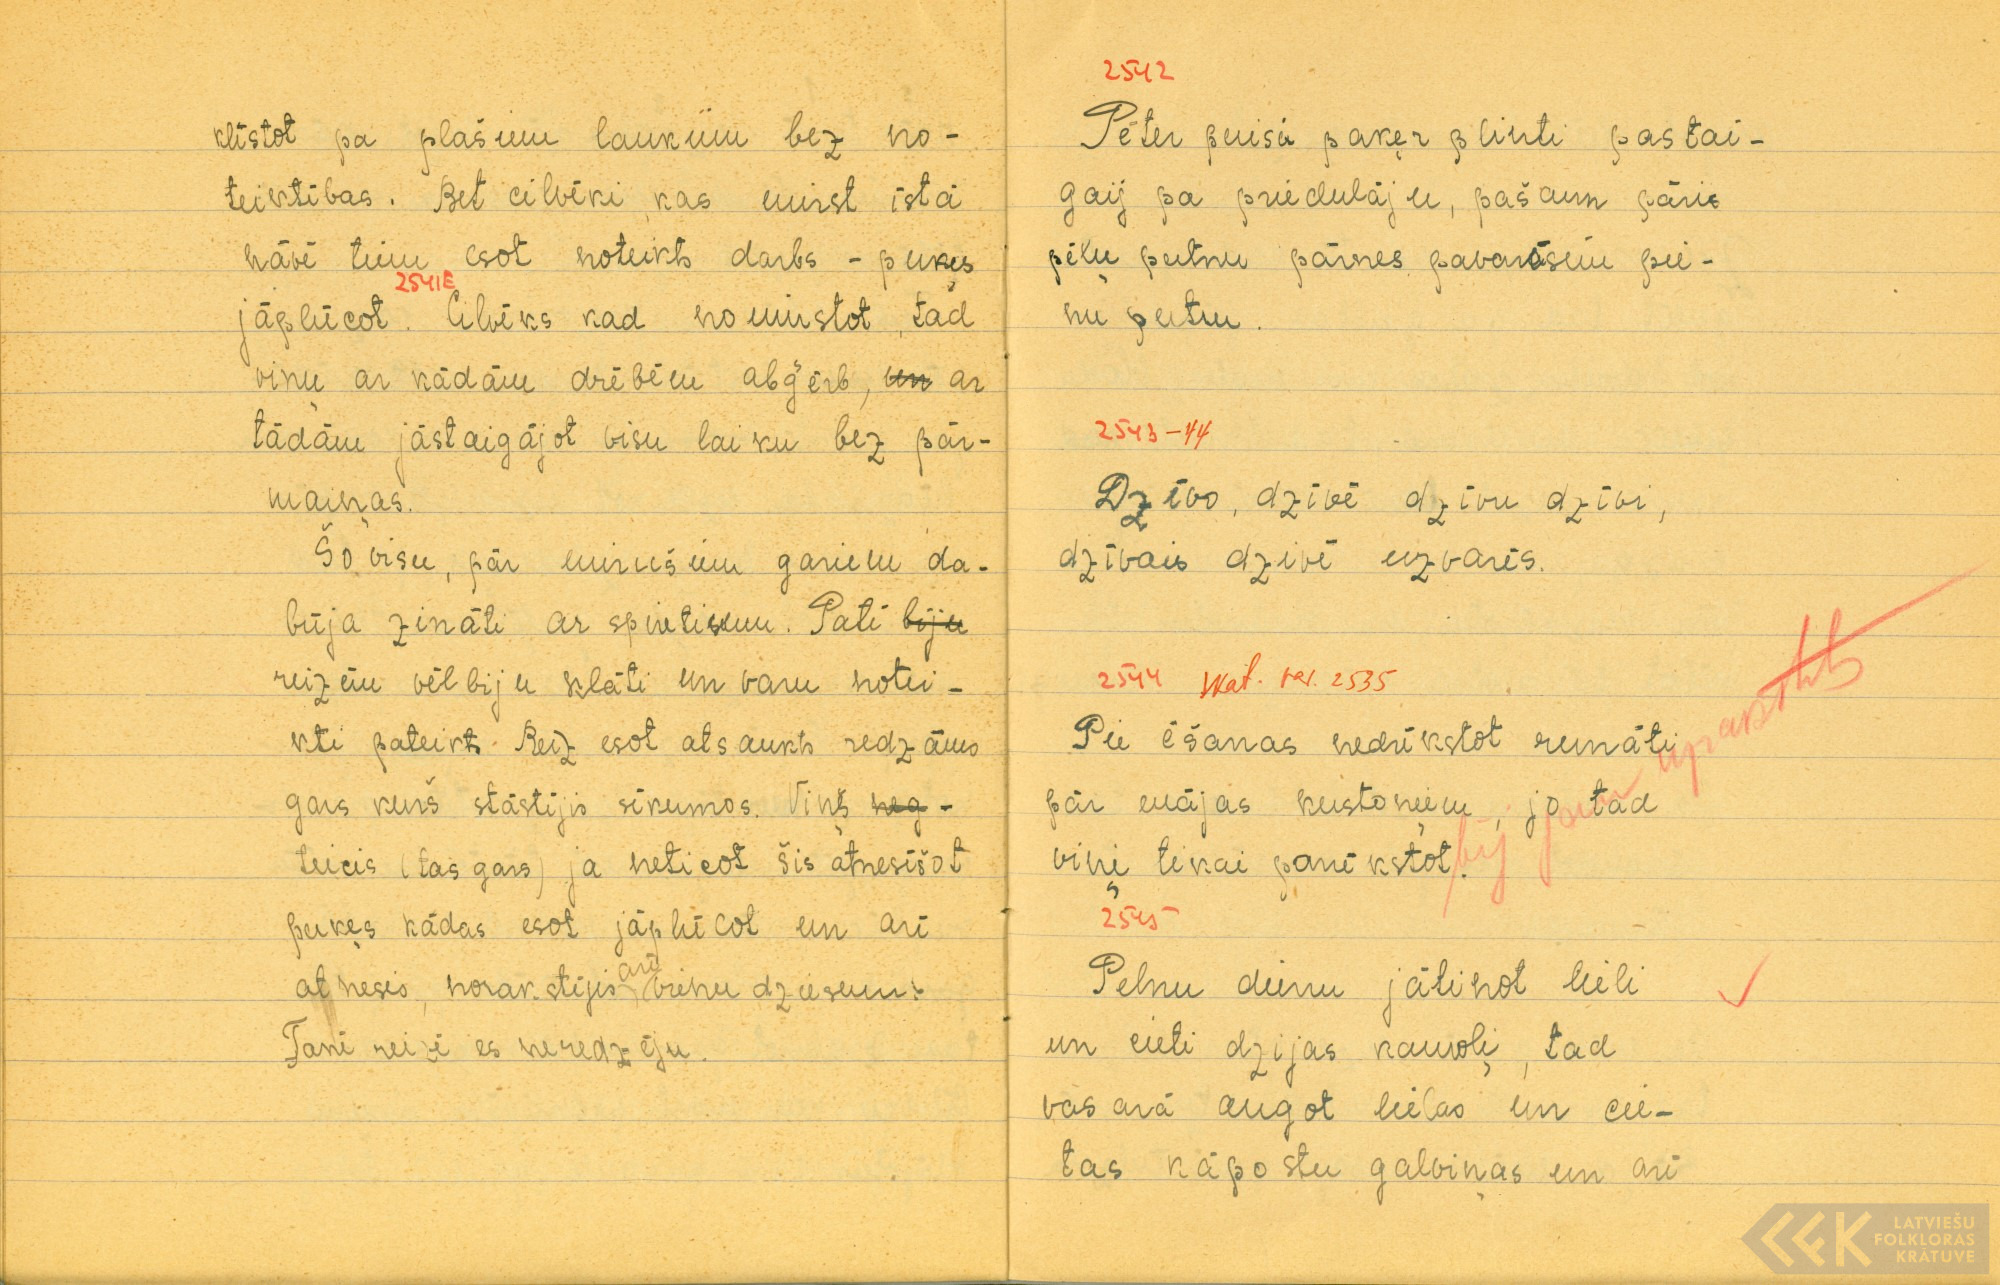 klīstot pa plašiem laukiem bez no-
teiktības. Bet cilvēki kas mirst īstā
nāvē tiem esot noteikts darbs - puķes
2541E
jāplūcot. Cilvēks kad nomirstot, tad
viņu ar kādām drēbēm abģērb, un ar
tādām jāstaigājot visu laiku bez pār-
maiņas.
Šo visu, pār mirušiem gariem da-
būja zināti ar spiritismu. Pati biju
reizēm vēl biju klāti un varu notei-
kti pateikt. Reiz esot atsaukts redzāms
gars kurš stāstījis sīkumos. Viņš neg-
teicis (tas gars) ja neticot šis atnesīšot
puķes kādas esot jāplūcot un arī
atnesis, norakstījis arī vienu dziesmu.
Tanī reizē es neredzēju.
2542
Pēter puisi paķer plinti pastai-
gaij pa priedulāju, pašam pāris
pēļu putnu pārnes pavarāsim pie-
nu putru.
2543-44
Dzīvo, dzīvē dzīvu dzīvi,
dzīvais dzivē uzvarēs.
2544 skat. var. 2535
Pie ēšanas nedrīkstot runāti
pār mājas kustoņiem, jo tad
viņi tikai panīkstot.
bij jau uprakstīts
2545
Pelnu dienu jātinot lieli
un cieti dzijas kamoļi, tad
vasarā augot lielas un cie-
tas kāpostu galviņas un arī
LATVIEŠU
FOLKLORAS
KRĀTUVE